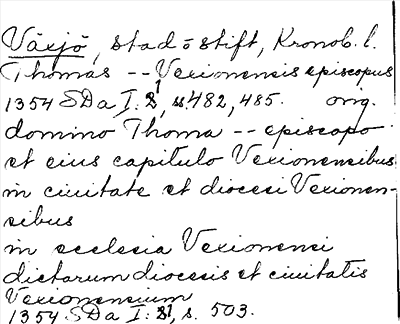 Växjö, stad o stift, Kronob. l.
Thomas -- Vexionensis episcopus
1354 SD a I: 1, s. 482, 485. orig.
domino Thoma -- episcopo
et eius capitulo Vexionensibus
in ciuitate et diocesi Vexionen-
sibus
in ecclesia Vexionensi
dictarum diocesis et ciuitatis
Vexionensium
1354 SD a I: 1, s. 503.